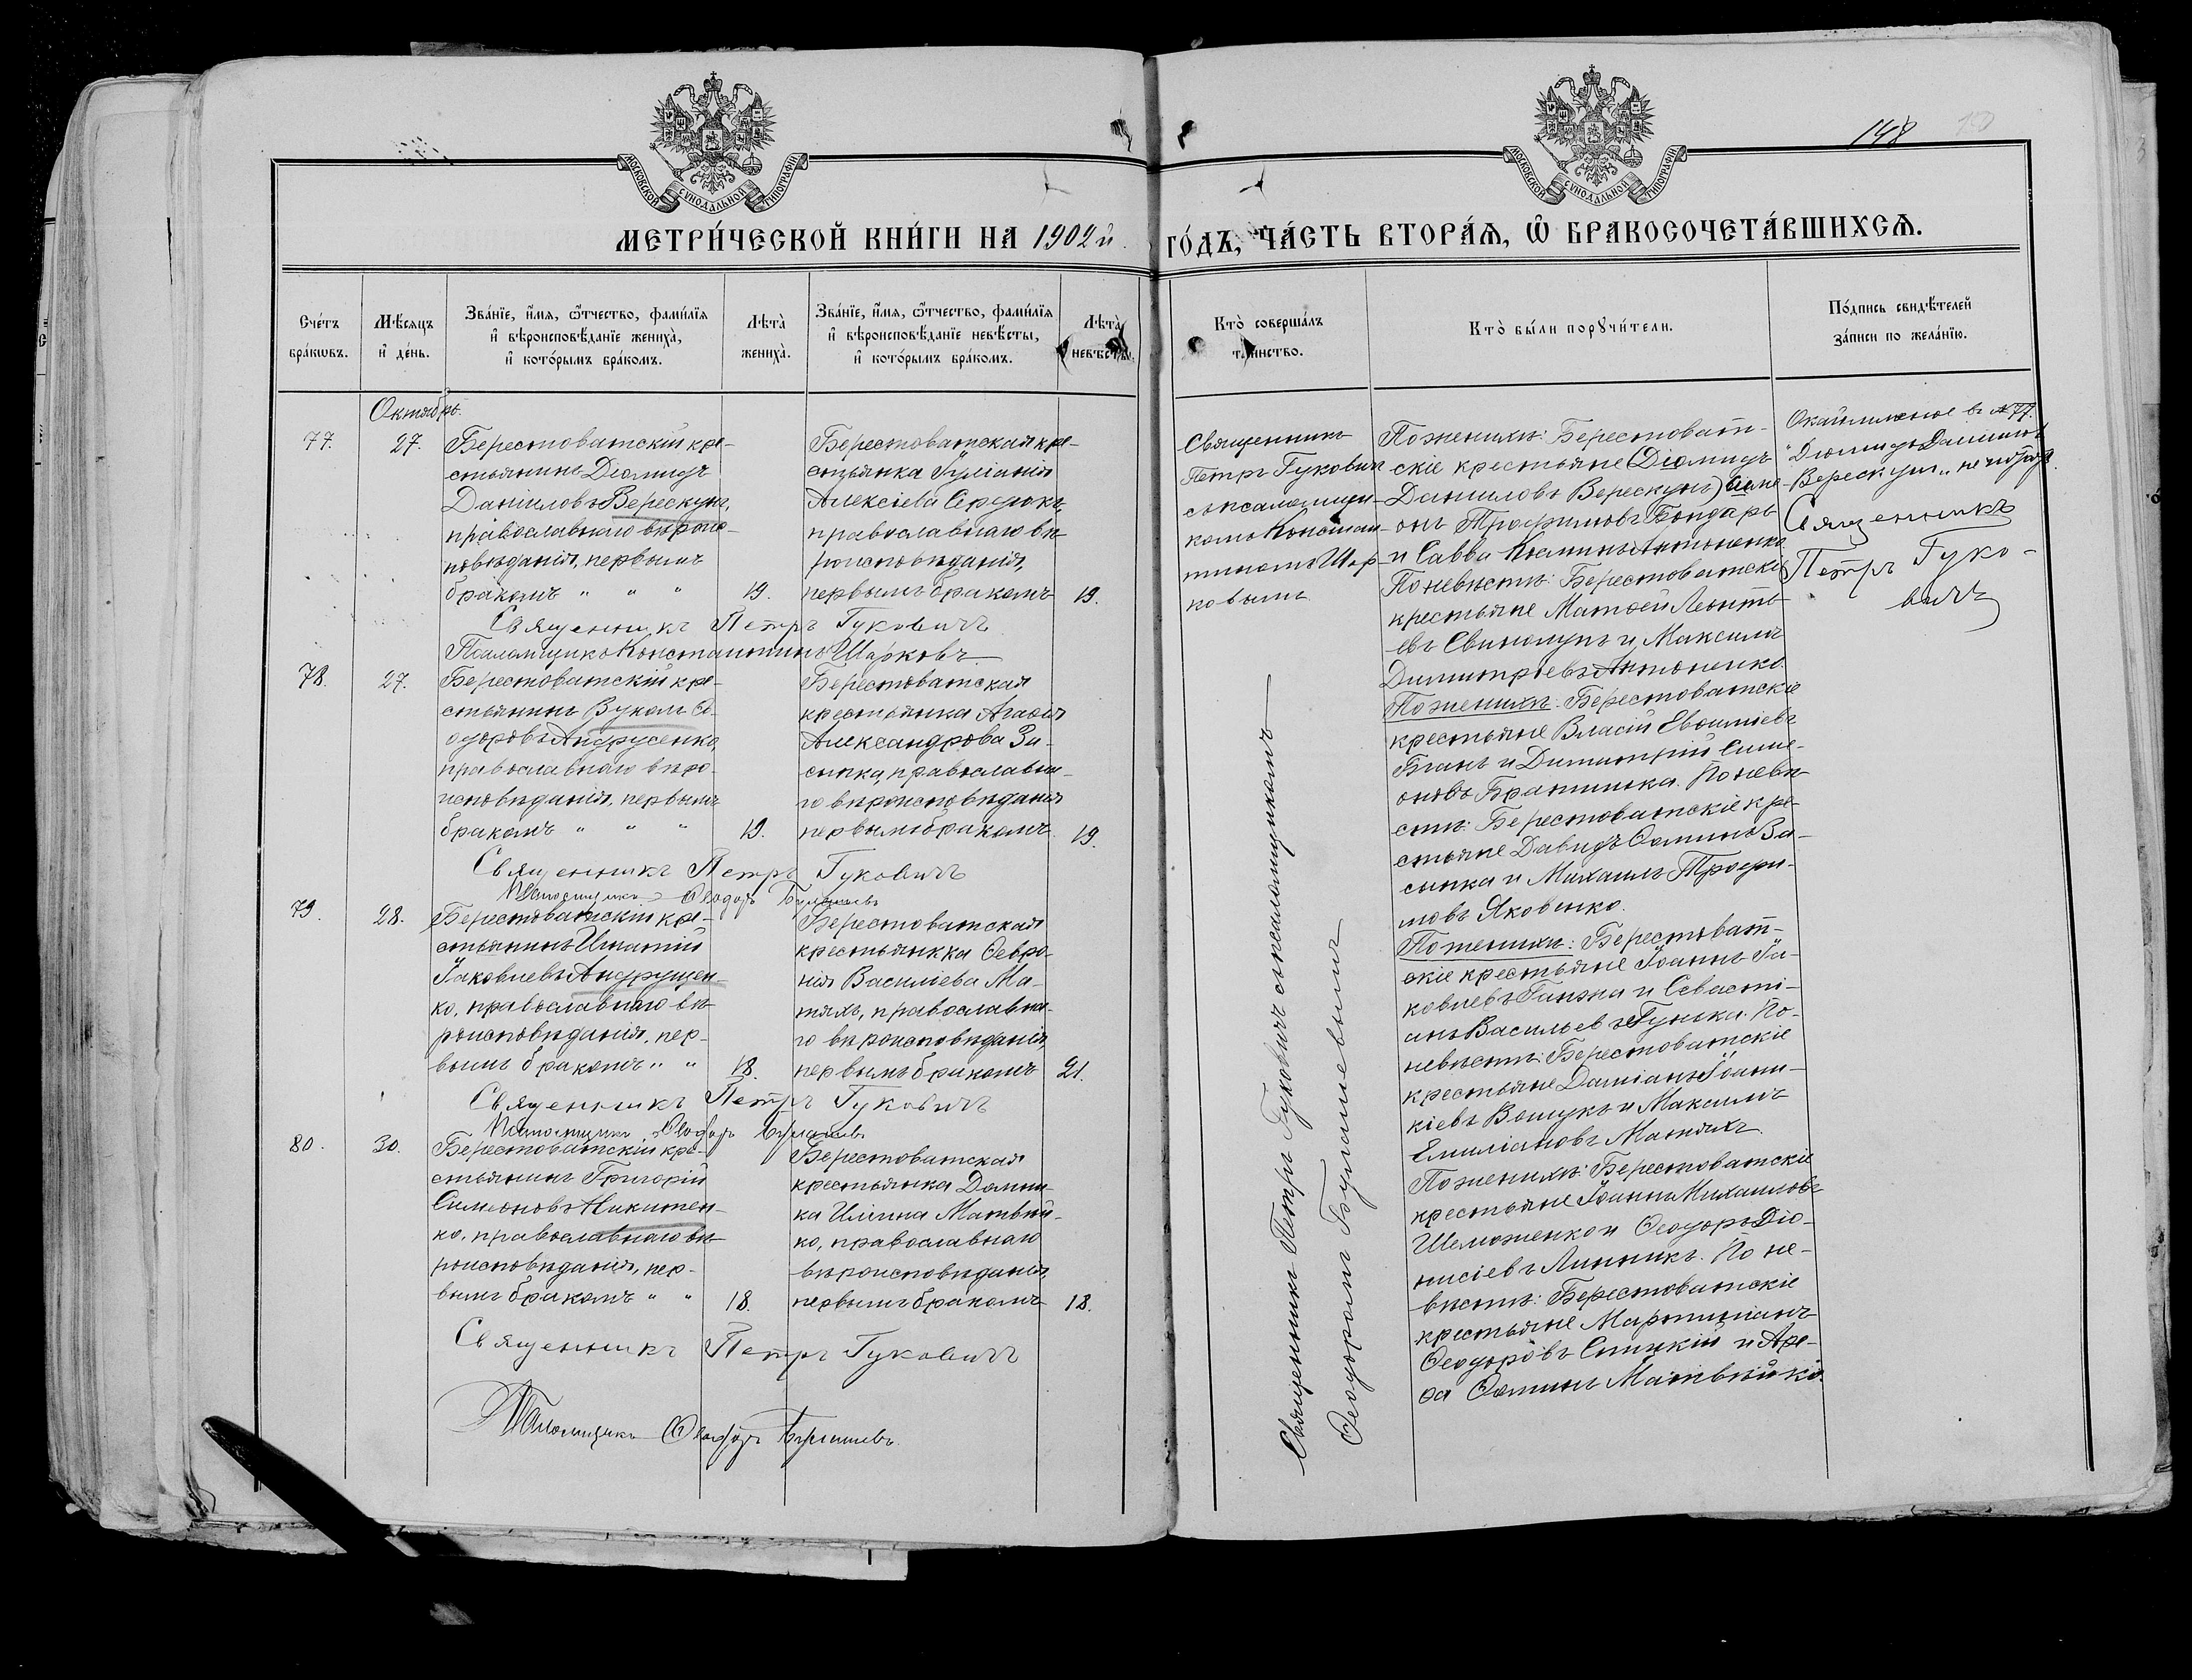 МОСКОВСКОЙ СУНОДАЛЬНОЙ ТИПОГРАФІИ
МЕТРИ́ЧЕСКОЙ КНИ́ГИ НА 1902 й
Сче́тъ бра́кѡвъ.
Мѣ́сяцъ и҆ де́нь.
Зва́нїе, и҆́мѧ, ѻ҆́тчество, фами́лїѧ
и҆ вѣроисповѣ́данїе жениха̀,
и҆ кото́рымъ бра́комъ.
Лѣ́та жениха̀.
Зва́нїе, и҆́мѧ, ѻ҆́тчество, фами́лїѧ
и҆ вѣроисповѣ́данїе невѣ́сты,
и҆ кото́рымъ бра́комъ.
Лѣ́та невѣ́сты.
Октябрь.
77.
27.
Берестоватскій кре-
стьянинъ Діомидъ
Даніиловъ Верескунъ,
православнаго вѣроис-
повѣданія, первымъ
бракомъ " " "
19.
Берестоватская кре-
стьянка Іуліанія
Алексіева Сердюкъ,
православнаго вѣ-
роисповѣданія,
первымъ бракомъ
19.
Священникъ Петръ Гуковичъ
Псаломщикъ Константинъ Шарковъ
78.
27.
Берестоватскій кре-
стьянинъ Вуколъ Ѳе-
одоровъ Андрусенко,
православнаго вѣро-
исповѣданія, первымъ
бракомъ " " "
19.
Берестоватская
крестьянка Агаѳія
Александрова За-
сыпка, православна-
го вѣроисповѣданія
первымъ бракомъ
19.
Священникъ Петръ Гуковичъ
Псаломщикъ Ѳеодоръ Булашевъ
79.
28.
Берестоватскій кре-
стьянинъ Игнатій
Іаковлевъ Андрущен-
ко, православнаго вѣ-
роисповѣданія, пер-
вымъ бракомъ " "
18.
Берестоватская
крестьянкка Ѳевро-
нія Василіева Ма-
тяхъ, православна-
го вѣроисповѣданія,
первымъ бракомъ
21.
Священникъ Петръ Гуковичъ
Псаломщикъ Ѳеодоръ Булашевъ
80.
30.
Берестоватскій кре-
стьянинъ Григорій
Симеоновъ Никитен-
ко, православнаго вѣ-
роисповѣданія, пер-
вымъ бракомъ " "
18.
Берестоватская
крестьянка Домни-
ка Иліина Матвѣй-
ко, православнаго
вѣроисповѣданія,
первымъ бракомъ
18.
Священникъ Петръ Гуковичъ
Псаломщикъ Ѳеодоръ Булашевъ.
148
МОСКОВСКОЙ СУНОДАЛЬНОЙ ТИПОГРАФІИ
ГО́ДЪ, ЧА́СТЬ ВТОРА́Ѧ, Ѽ БРАКОСОЧЕТА́ВШИХСѦ.
Кто̀ соверша́лъ та́инство.
Кто̀ бы́ли порꙋчи́тели.
По́дпись свидѣ́телей
за́писи по жела́нїю.
Священникъ
Петръ Гуковичъ
съ псаломщи-
комъ Констан-
тиномъ Шар-
ковымъ
Священникъ Петръ Гуковичъ съ псаломщикомъ
Ѳеодоромъ Булашевымъ
По женихѣ: Берестоват-
скіе крестьяне (Діомидъ
Даниловъ Верескунъ) Симе-
онъ Трофимовъ Бондарь
и Савва Антоненко
По невѣстѣ: Берестоватскіе
крестьяне Матѳей Леонть-
евъ и Максимъ
Димитріевъ Антоненко.
По женихѣ: Берестоватскіе
крестьяне Власій Евѳиміевъ
и Димитрій Симе-
оновъ Братишка. По невѣ-
стѣ: Берестоватскіе кре-
стьяне Давидъ Ѳоминъ За-
сыпка и Михаилъ Трофи-
мовъ Яковенко.
По женихѣ: Берестоват-
скіе крестьяне Іоаннъ Іа-
ковлевъ Ганжа и Севасті-
анъ Васильевъ Гунька. По-
невѣстѣ: Берестоватскіе
крестьяне Даміанъ Іоанни-
кіевъ и Максимъ
Емиліановъ Матяхъ.
По женихѣ: Берестоватскіе
крестьяне Іоаннъ Михаиловъ
Шеможенко и Ѳеодоръ Діо-
нисіевъ Линникъ. По не-
вѣстѣ: Берестоватскіе
крестьяне Мартиніанъ
Ѳеодоровъ Спицкій и Аре-
ѳа Ѳоминъ Матвѣйко.
Окаймленное въ № 77.
"Діомидъ Даниловъ
Верескунъ" не читать.
Священникъ
Петръ Гуко-
вичъ